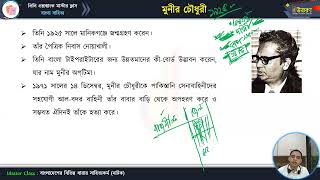 বিসিএস প্রস্তুতি মাস্টার ক্লাস
বাংলা সাহিত্য
মুনীর চৌধুরী
১৯২৫
তিনি ১৯২৫ সালে মানিকগঞ্জে জন্মগ্রহণ করেন।
তাঁর পৈত্রিক নিবাস নোয়াখালী।
তিনি বাংলা টাইপরাইটারের জন্য উন্নতমানের কী-বোর্ড উদ্ভাবন করেন,
যার নাম মুনীর অপ্‌টিমা।
১৯৭১ সালের ১৪ ডিসেম্বর, মুনীর চৌধুরীকে পাকিস্তানি সেনাবাহিনীদের
সহযোগী আল-বদর বাহিনী তাঁর বাবার বাড়ি থেকে অপহরণ করে ও
সম্ভবত ঐদিনই তাঁকে হত্যা করে।
Master Class : বাংলাদেশের বিভিন্ন ধারার সাহিত্যকর্ম (নাটক)